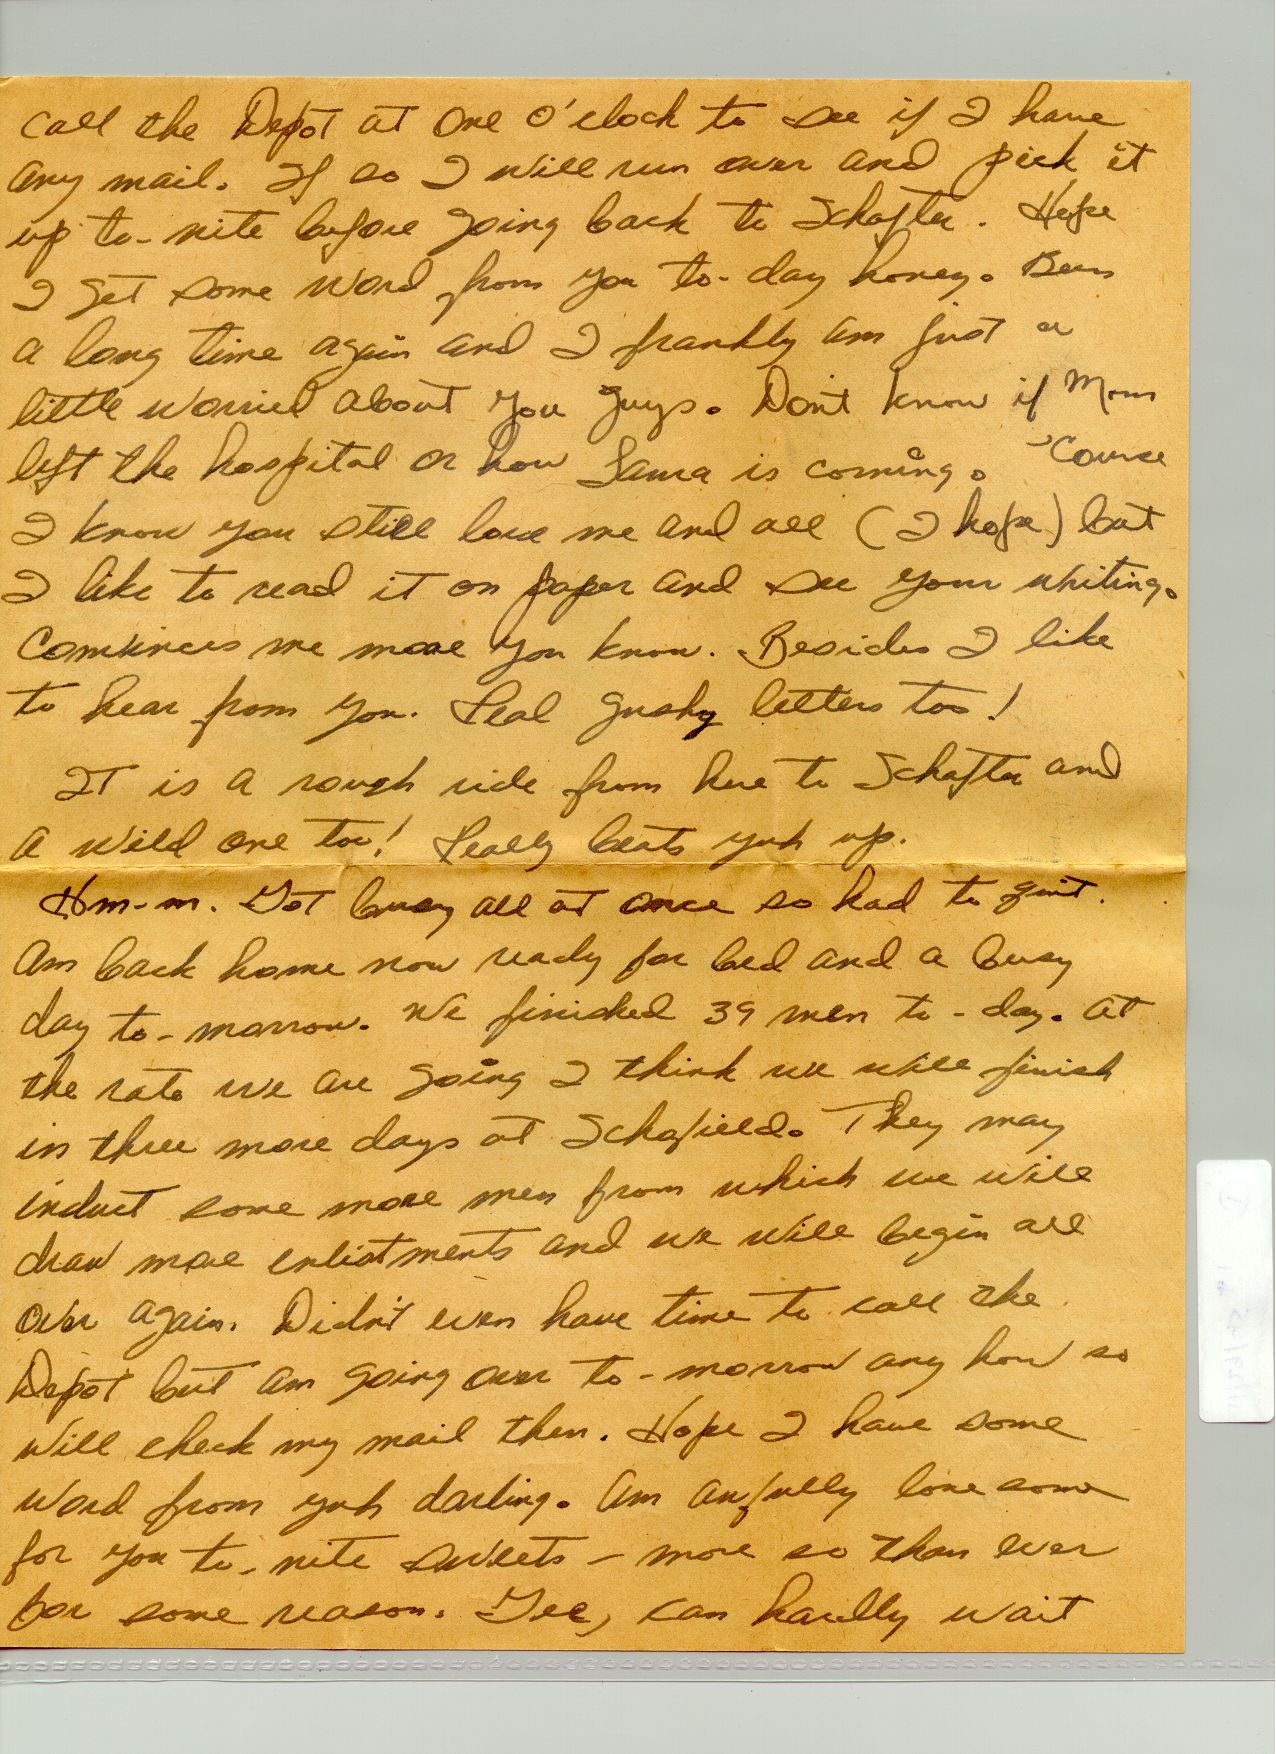 call the Depot at one o'clock to see if I have
any mail. If so I will run over and pick it
up to-nite before going back to Schafter. Hope
I get some word from you to-day honey. Been
a long time again and I frankly am just a
little worried about you guys. Don't know if Mom
left the hospital or how Laura is coming. 'Course
I know you still love me and all (I hope) but
I like to read it on paper and see your writing.
Convinces me more you know. Besides I like
to hear from you. Real gushy letters too!
It is a rough ride from here to Schafter and
a wild one too! Really beats yuh up.
Hm-m. Got busy all at once so had to quit.
Am back home now ready for bed and a busy
day to-morrow. We finished 39 men to-day. At
the rate we are going I think we will finish
in three more days at Schofield. They may
induct some more men from which we will
draw more enlistments and we will begin all
over again. Didn't even have time to call the
Depot but am going over to-morrow any how so
will check my mail then. Hope I have some
word from yuh darling. Am awfully lonesome
for you to-nite sweets - more so than ever
for some reason. Gee, can hardly wait